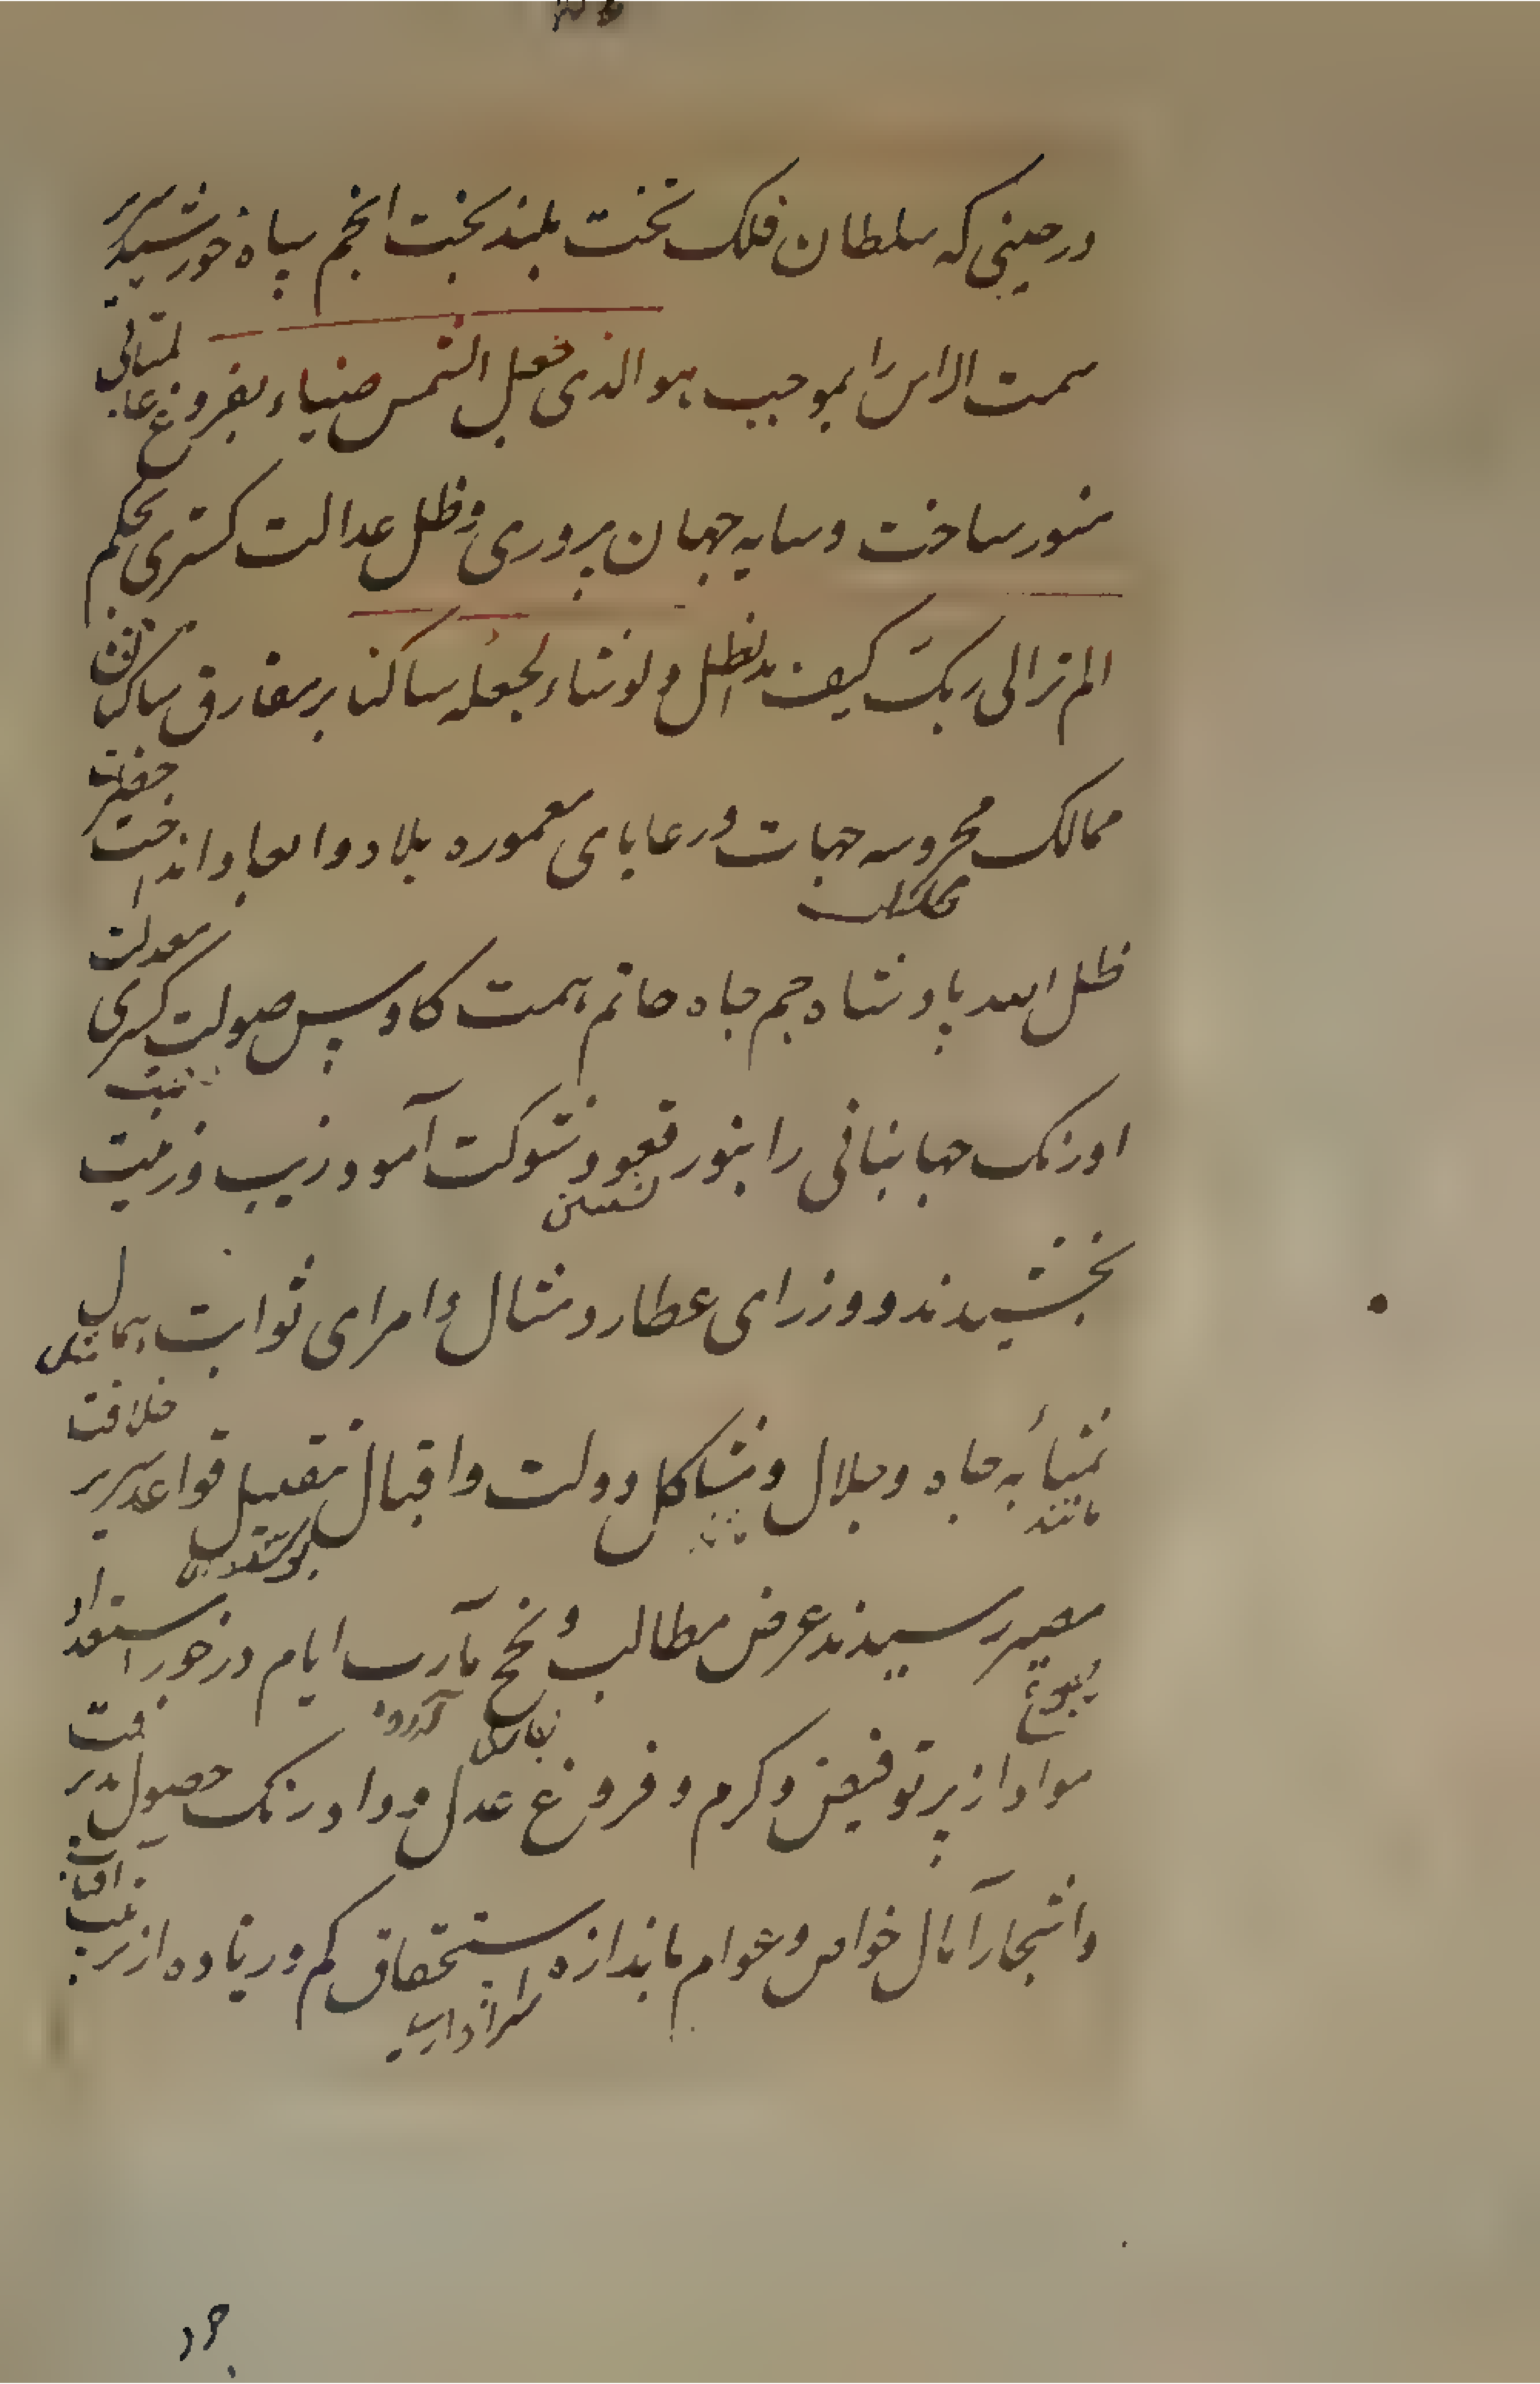 درحینی که سلطان فلک تخت بلند بخت انجم سپاه خورشید سریر
سمت الراس را بموجب هو الذی جعل الشمس ضیاء بفروغ عا لمتابی
منور ساخت و سایه جهان پروری و ظل عدالت کستری بحکم
الم تر الی ربک کیف مد الظل و لو شاء لجعله ساکنا بر مفارق ساکنان
ممالک محروسه جهات و رعایای معموره بلاد و انداخت حضرت
ظل الله پادشاه جم جاه حاتم همت کاوس صولت کسری معدلت
اورنک جهانبانی را بنور قعود شوکت آمود زیب و زینت
نشستن
بخشیدند و وزرای عطارد مثال و امرای ثوابت
بمثابه جاه و جلال و مشاکل دولت و اقبال بتقبیل قواعد سریر خلافت
مانند
مصیر رسیدند عرض مطالب و نجح مآرب ایام درخور استعداد
مواد از پرتو فیض و کرم و فروغ عدل و داد رنک حصول پذیرفت
و اشجار آمال خواص و عوام باندازه استحقاق کم و زیاده از